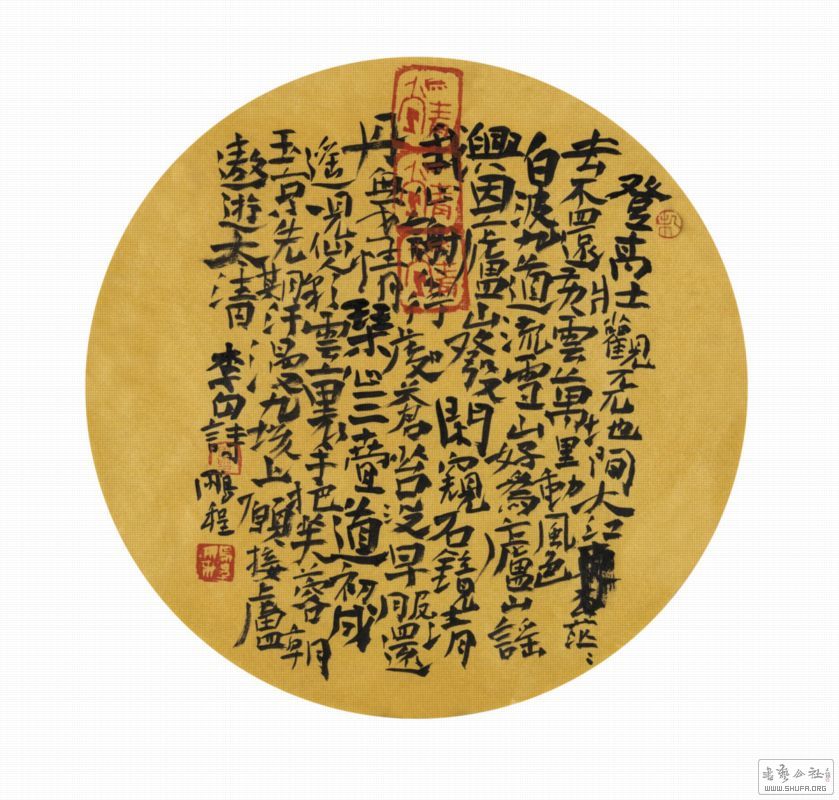 登高壯觀天地間大江茫〻
去不還黃雲萬里動風色
白波九道流雪山好為廬山謠
興因廬山發閑窺石鏡清
我心謝行處蒼苔沒早服還
丹無世情琴心三疊道初成
遙見仙人彩雲裏手把芙蓉朝
玉京先期汗漫九垓上願接盧
遨遊太清
李白詩
鵬程
書藝公社
WWW.SHUFA.ORG